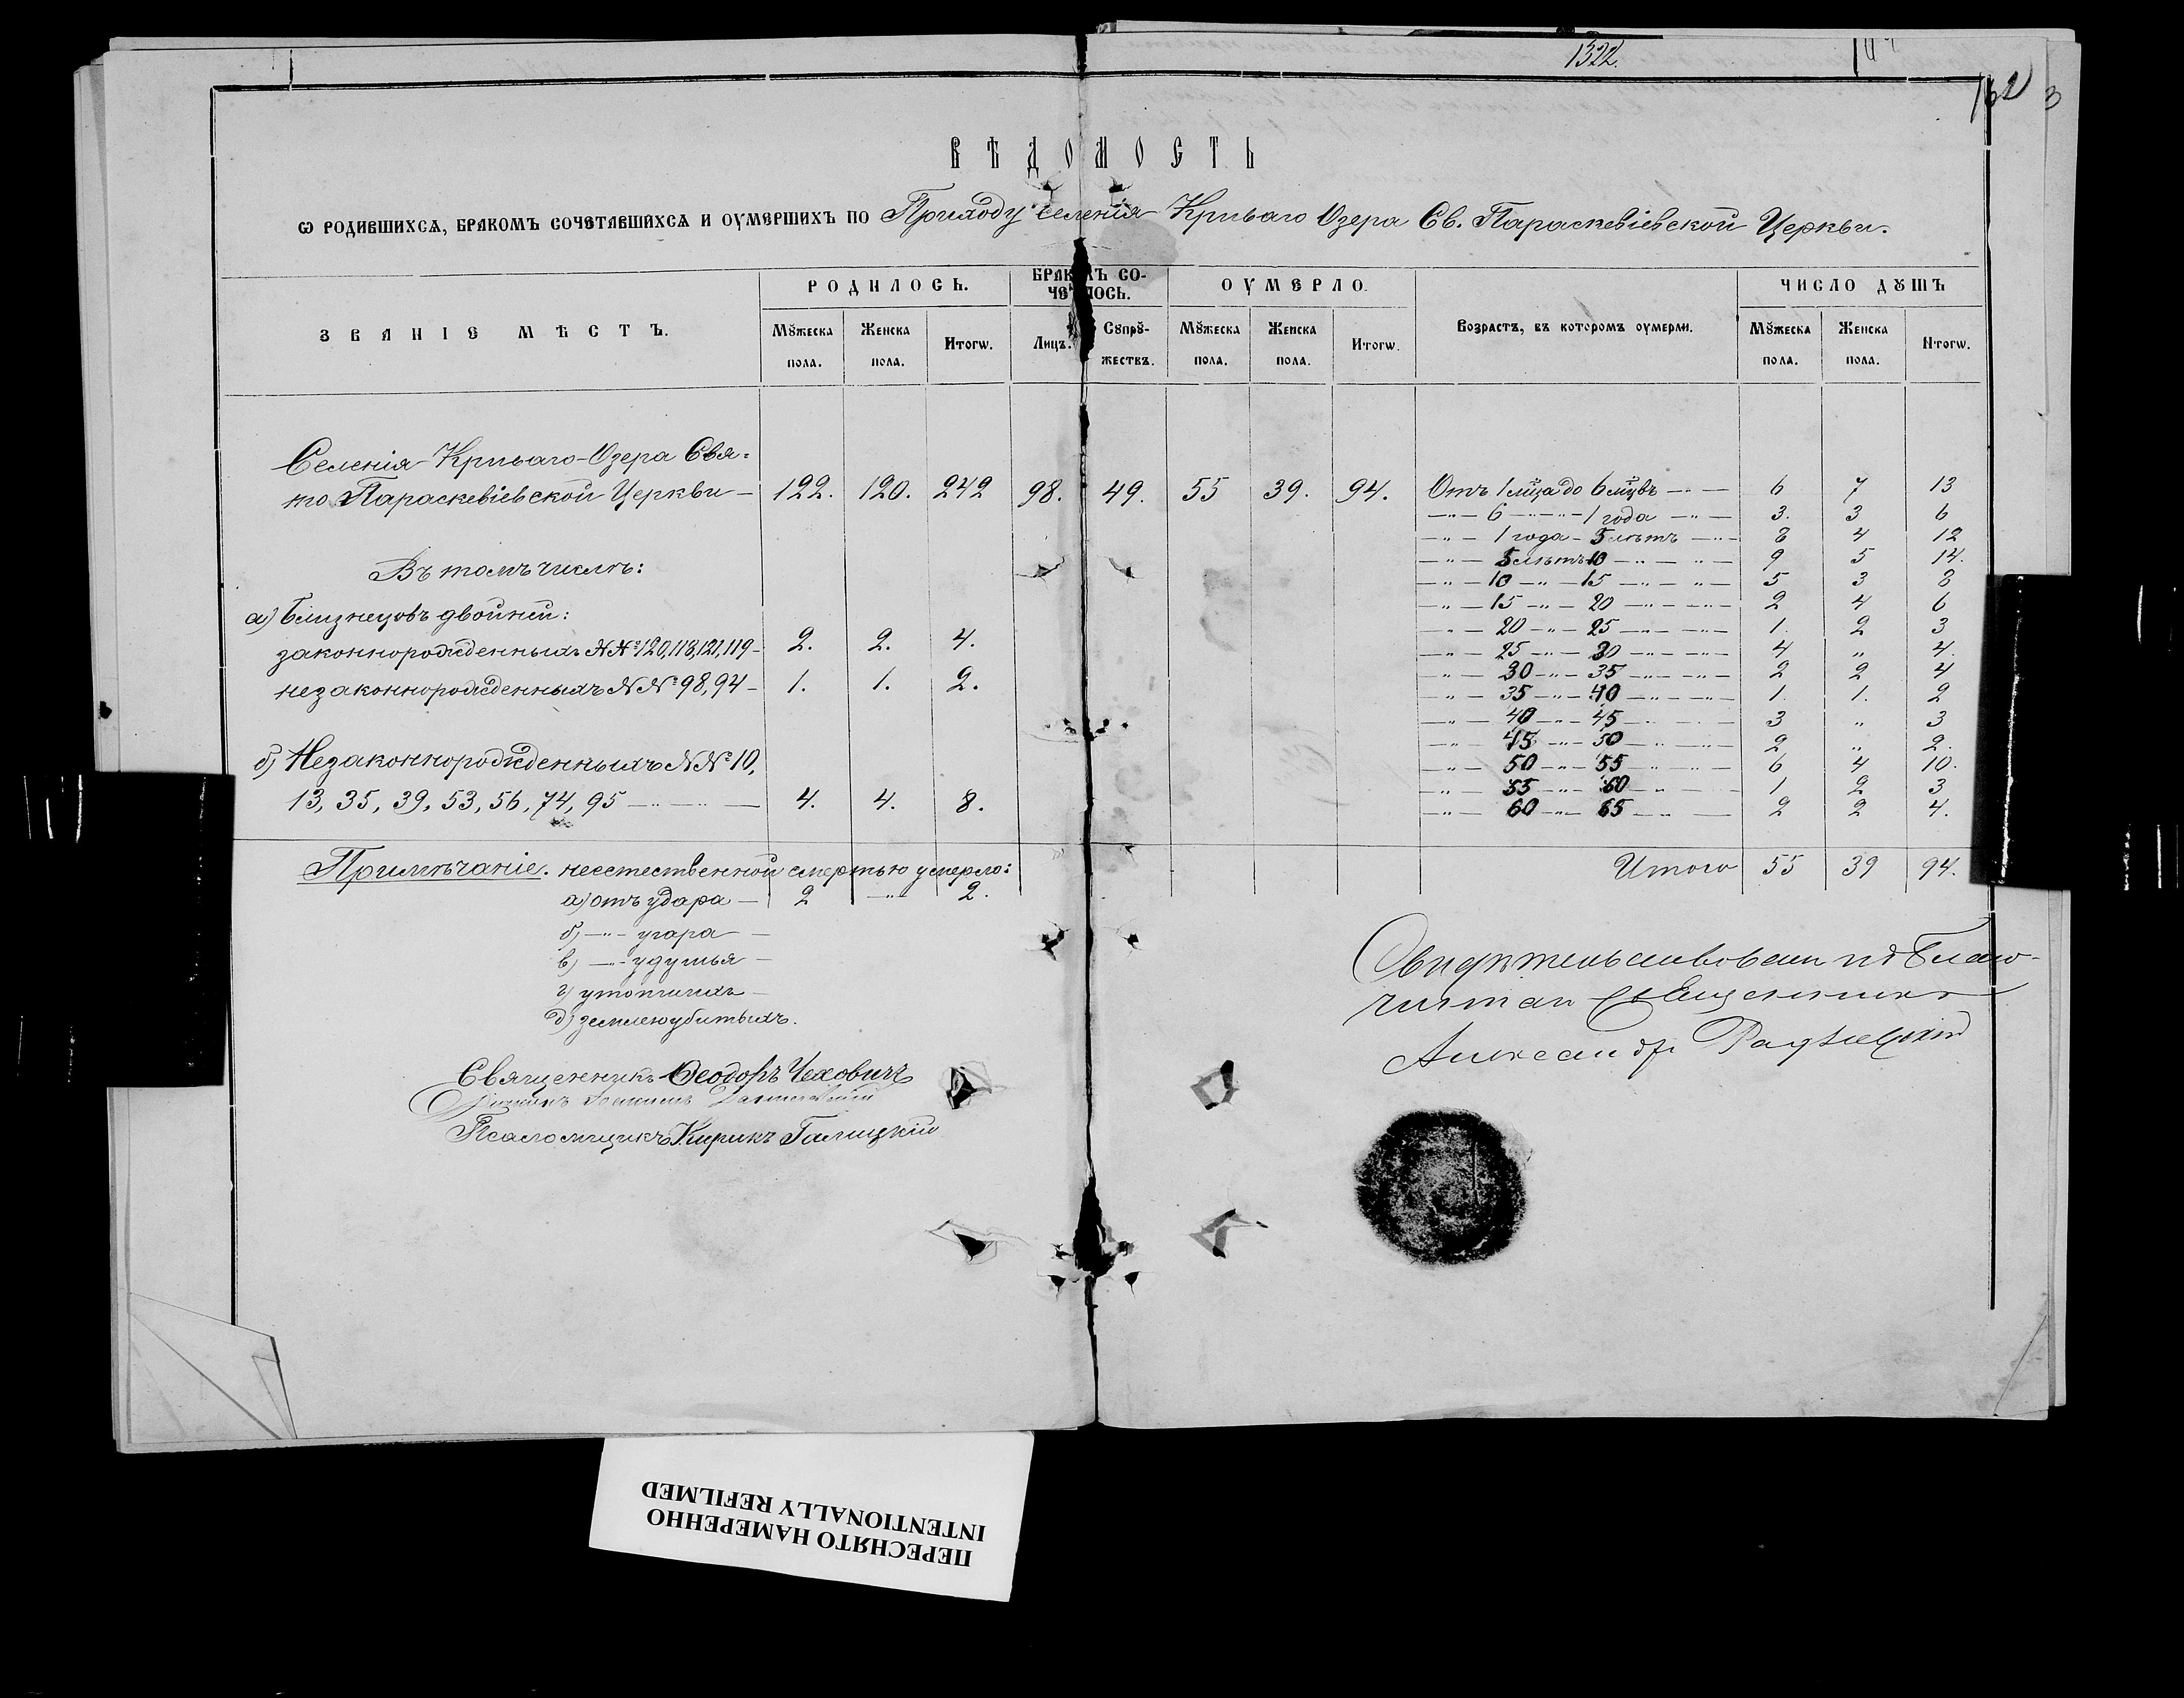 1322.
ВѢДОМОСТЬ
Ѡ РОДИВШИХСѦ, БРАКОМЪ СОЧЕТАВШИХСѦ И ОУМЕРШИХЪ ПО Приходу селенія Криваго Озера Св. Параскевіевской Церкви.
ЗВАНІЕ МѢСТЪ.
РОДИЛОСЬ.
БРАКОМЪ СО-
ЧЕТАЛОСЬ.
ОУМЕРЛО.
Возрастъ, въ которомъ оумерли.
ЧИСЛО ДꙊШЪ
Мꙋжеска пола. Женска пола. Итогѡ. Лицъ. Сꙋпрꙋ-жествъ. Мꙋжеска пола. Женска пола. Итогѡ. Мꙋжеска пола. Женска пола. Итогѡ.
Селенія Криваго-Озера Свя-
то Параскевіевской Церкви — 122. 120. 242 98. 49. 55 39. 94.
Отъ 1 мца до 6 мцвъ —"— 6 7 13
—"— 6 —"—"— 1 года —"— 3. 3 6
—"— 1 года — 5 лѣтъ —"— 8 4 12
—"— 5 лѣтъ 10 —"— —"— 9 5 14.
—"— 10 —"— 15 —"— —"— 5 3 8
—"— 15 —"— 20 —"— —"— 2 4 6
—"— 20 —"— 25 —"— —"— 1. 2 3
—"— 25 —"— 30 —"— —"— 4 " 4.
—"— 30 —"— 35 —"— —"— 2 2 4
—"— 35 —"— 40 —"— —"— 1 1. 2
—"— 40 —"— 45 —"— —"— 3 " 3
—"— 45 —"— 50 —"— —"— 2 " 2.
—"— 50 —"— 55 —"— —"— 6 4 10.
—"— 55 —"— 60 —"— — 1 2 3
—"— 60 —"— 65 —"— — 2 2 4.
Итого 55 39 94.
Въ томъ числѣ:
а) Близнецовъ двойни:
законнорожденныхъ №№ 120, 118, 121, 119 — 2. 2. 4.
незаконнорожденныхъ №№ 98, 94 — 1. 1. 2.
б) Незаконнорожденныхъ №№ 10,
13, 35, 39, 53, 56, 74, 95 —"— —"— 4. 4. 8.
Примѣчаніе. неестественной смертью умерло:
а) отъ удара — 2 —"— 2.
б) —"— угара —
в) —"— удушья —
г) утопшихъ —
д) землею убитыхъ.
Священникъ Ѳеодоръ Чехович
Псаломщикъ Кирикъ Галицкій
Свидѣтельствовалъ Благо-
чинный Священникъ
Александръ
ПЕРЕСНЯТО НАМЕРЕННО
INTENTIONALLY REFILMED